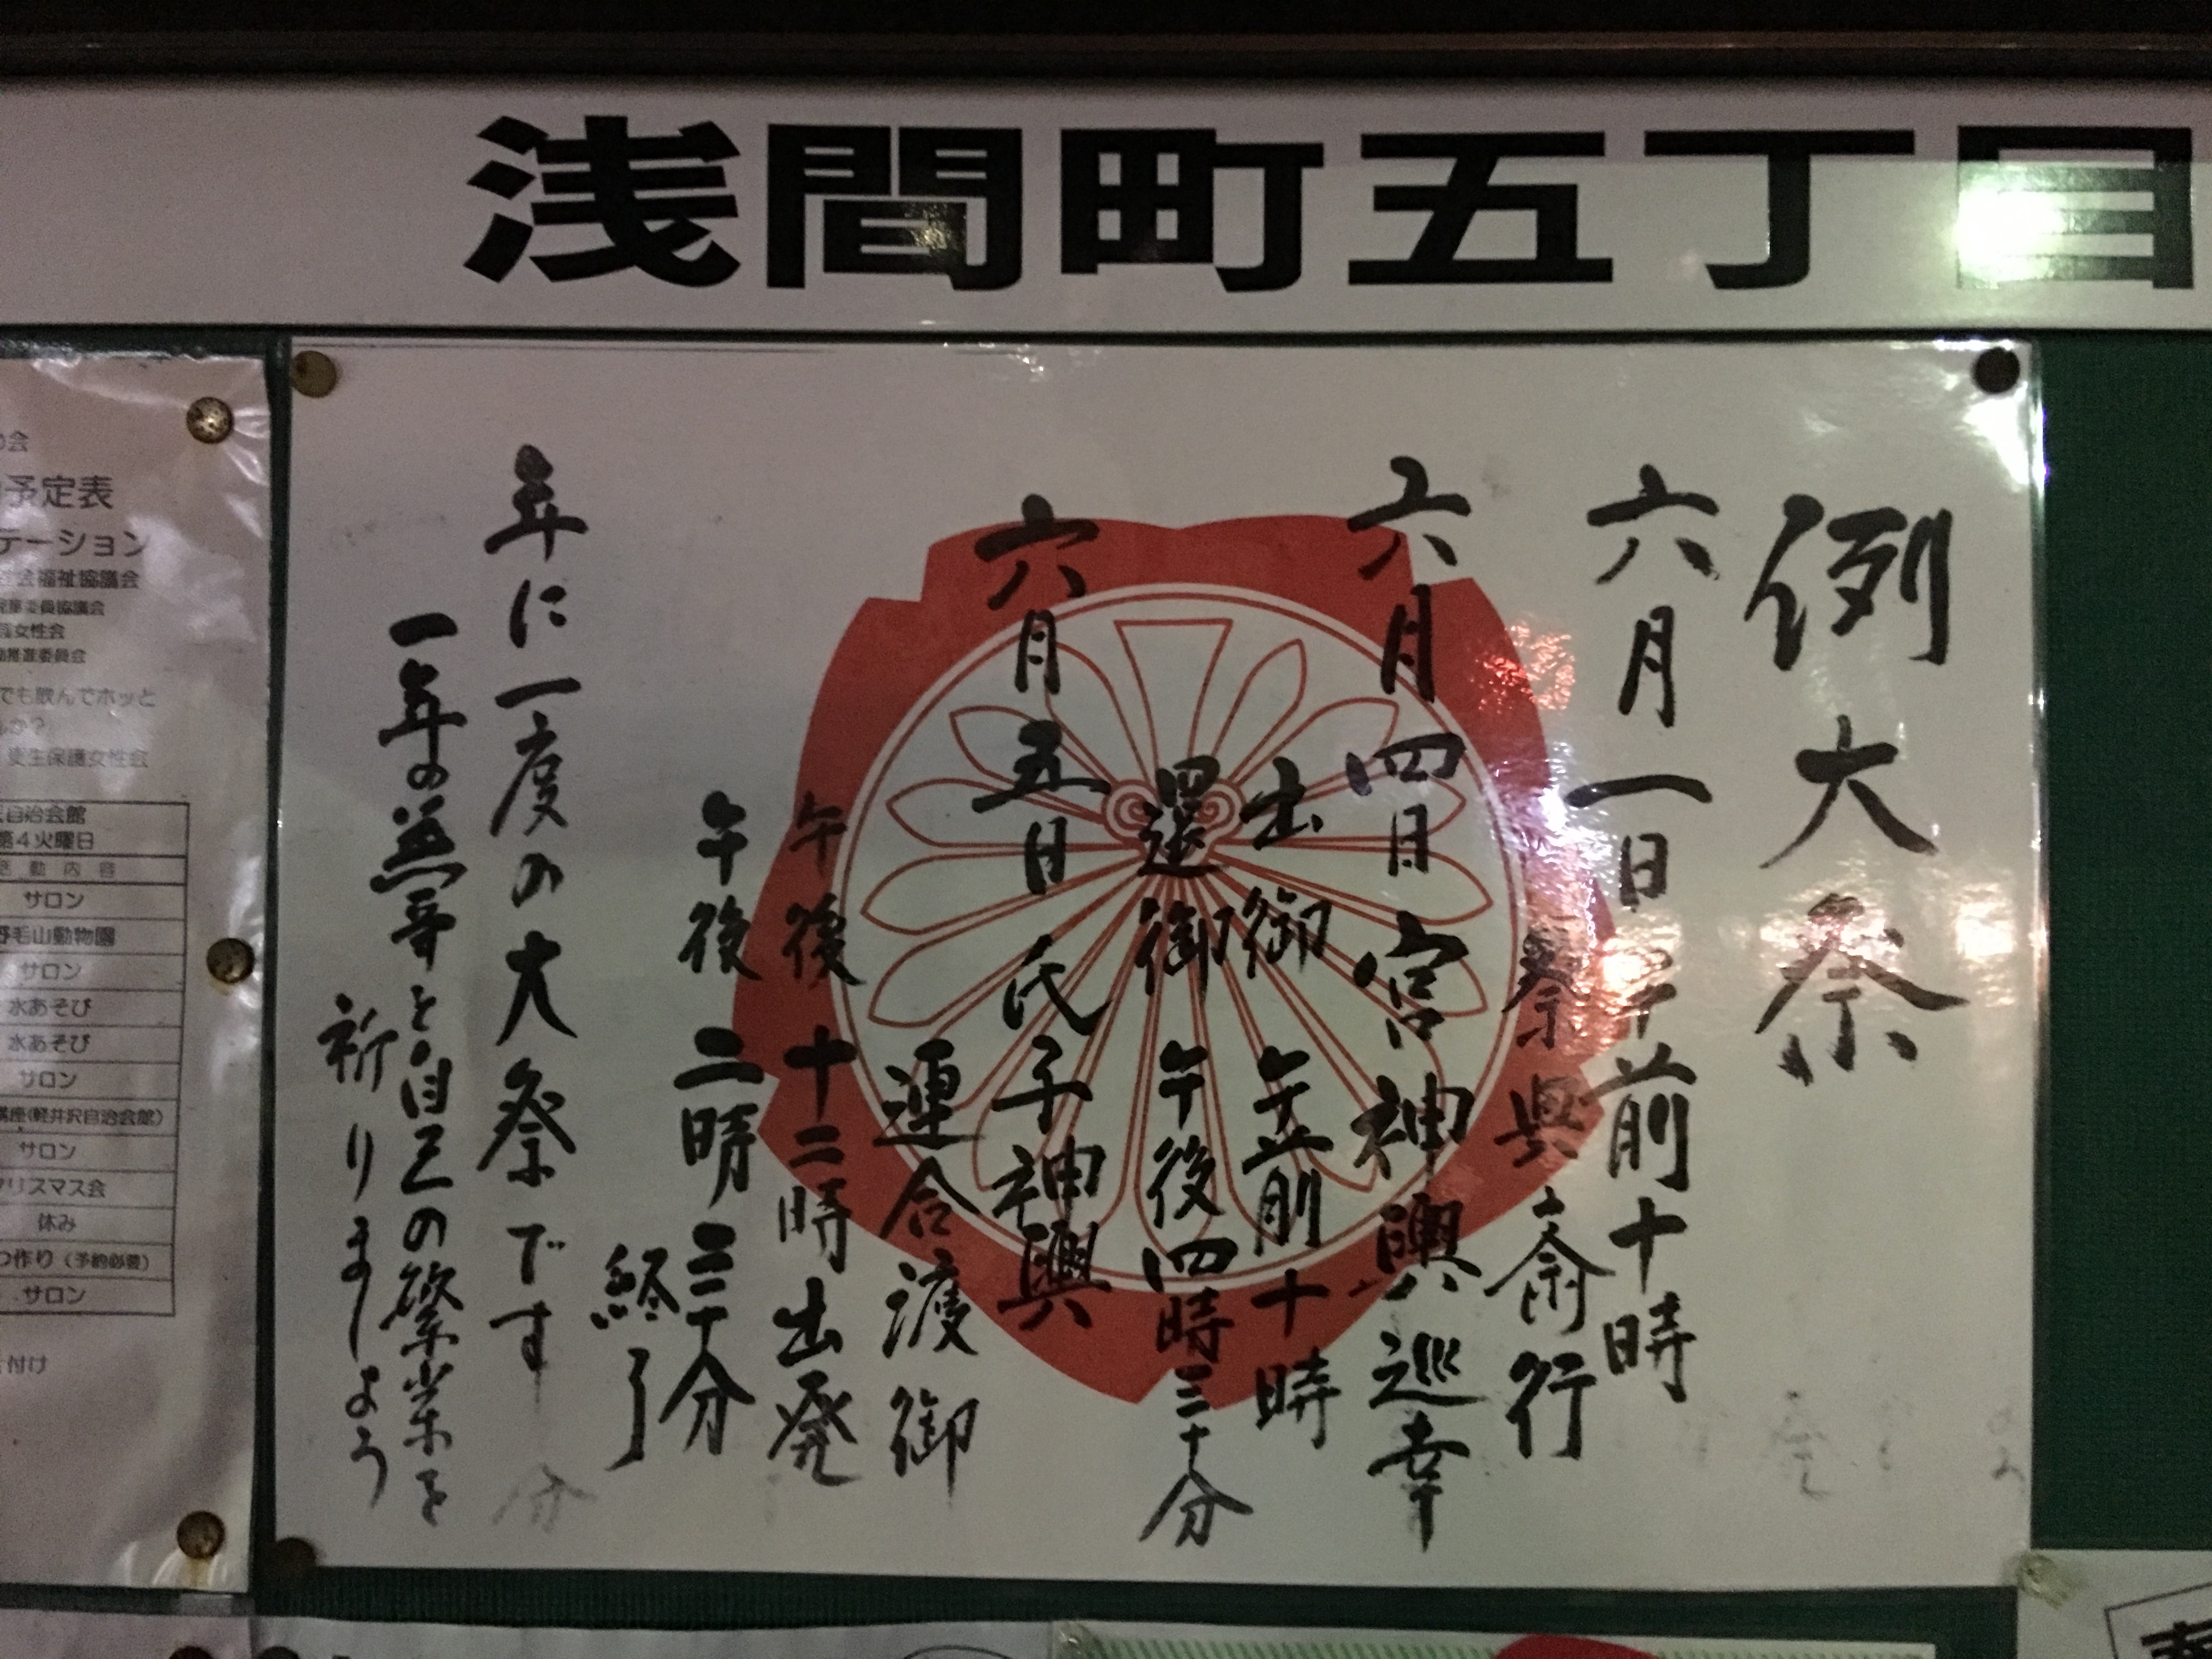 浅間町五丁目
例大祭
六月一日 午前十時
祭典斎行
六月四日 宮神輿巡幸
出御 午前十時
還御 午後四時三十分
六月五日 氏子神輿
連合渡御
午後十二時出発
午後二時三十分
終了
年に一度の大祭です
一年の無事と自己の繁栄を
祈りましょう
の会
予定表
テーション
会福祉協議会
女性会
推進委員会
でも飲んでホッと
更生保護女性会
自治会館
第4火曜日
活動内容
サロン
野毛山動物園
サロン
水あそび
水あそび
サロン
講座(軽井沢自治会館)
サロン
クリスマス会
休み
つ作り(予約必要)
サロン
付け